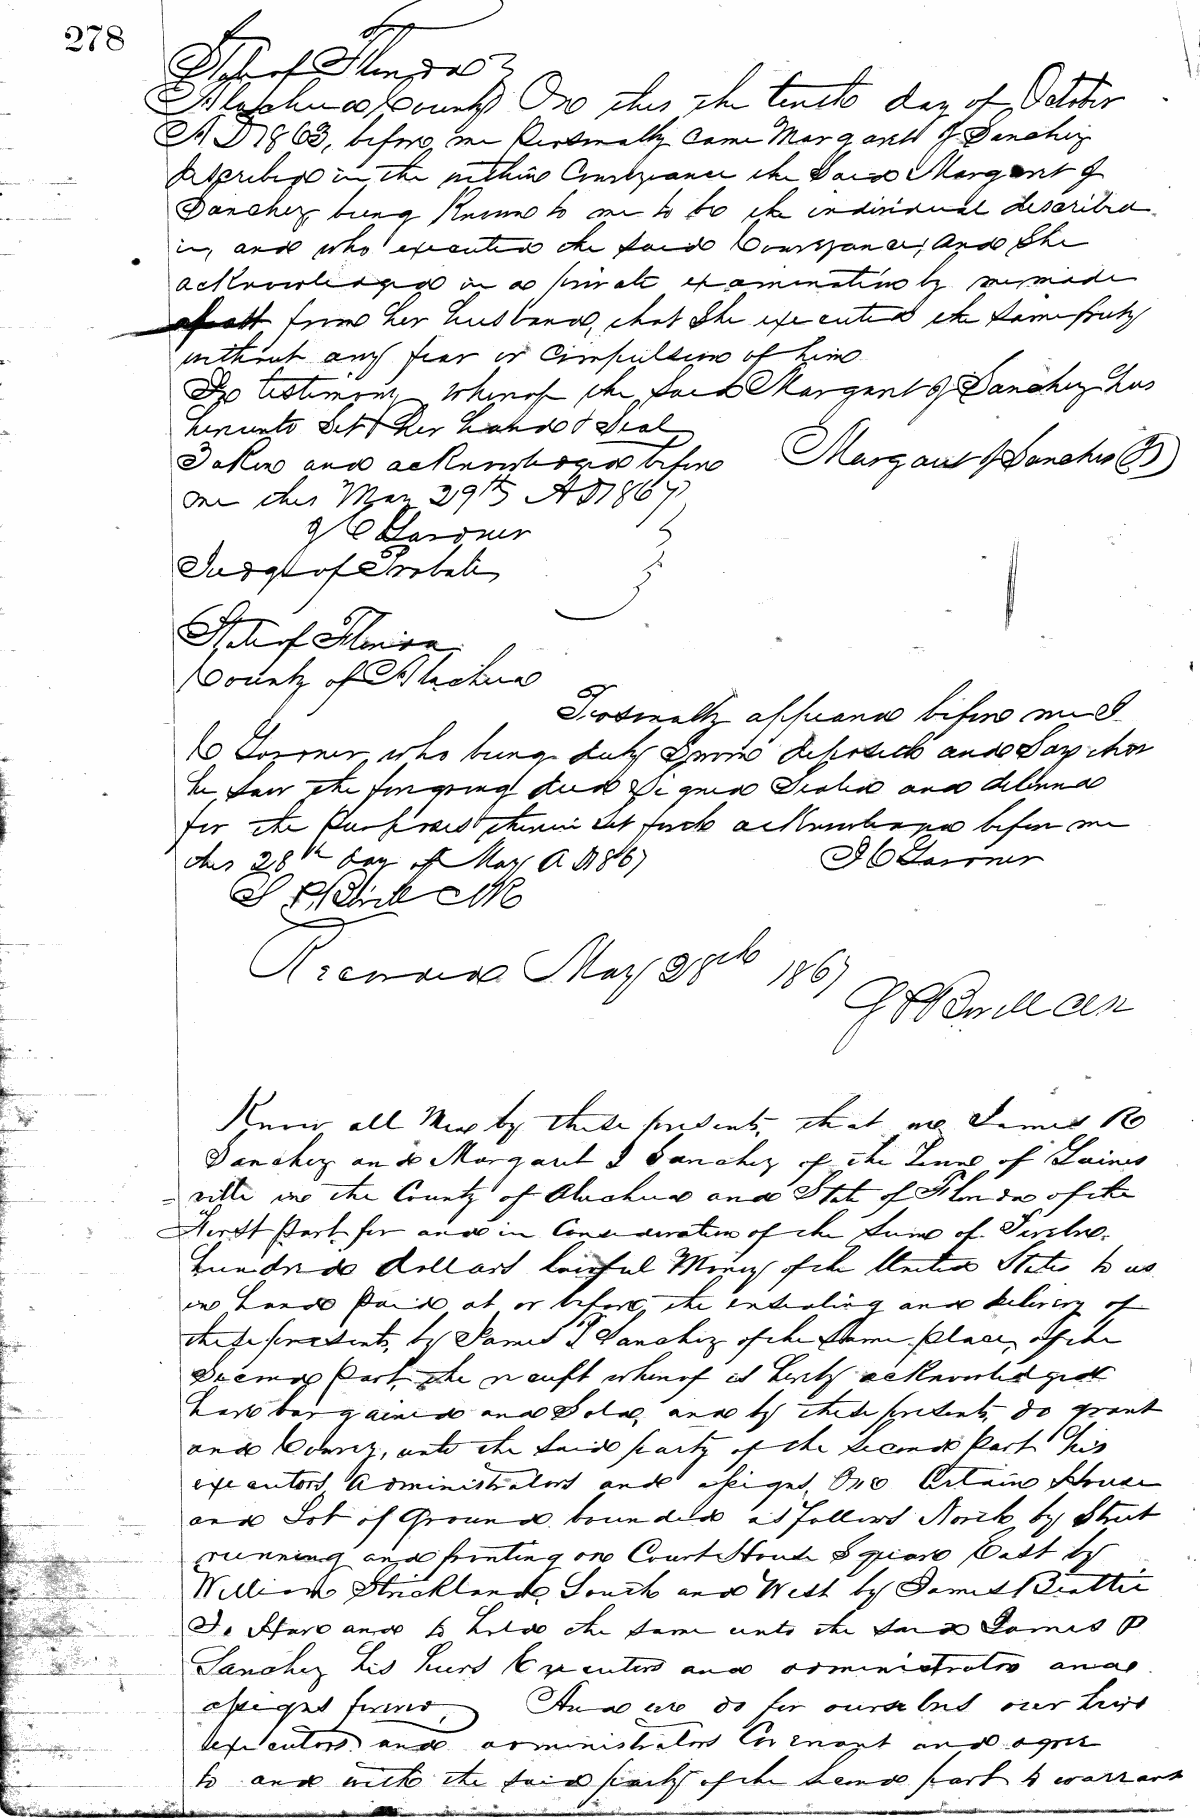 278
State of Florida
Alachua County On this the tenth day of October
A D 1863, before me Personally came Margaret J Sanchez
described in the within Conveyance the Said Margaret J
Sanchez being Known to me to be the individual described
in, and who executed the said Conveyance, And She
acKnowledged in a private examination by me made
apart from her husband, that She executed the same freely
without any fear or Compulsion of him
In testimony whereof the said Margaret J Sanchez has
hereunto Set her hand & Seal
Taken and acKnowledged before Margaret J Sanchez
me this May 29th AD 1867
J C Gardner
Judge of Probate
State of Florida
County of Alachua
Personally appeared before me J
C Gardner who being duly Sworn deposeth and Say that
he saw the foregoing deed Signed Sealed and delivered
for the Purposes therein set forth acKnowledged before me
this 28th day of May A D 1867 J C Gardner
Clk
Recorded May 28th 1867
Clk
Know all Men by these presents, that we James R
Sanchez and Margaret J Sanchez of the Town of Gaines
ville in the County of Alachua and State of Florida of the
First Part for and in Consideration of the Sum of Twelve
hundred dollars lawful Money of the United States to us
in hand Paid, at or before, the ensealing and delivery of
these presents, by James P Sanchez of the Same place, of the
Second Part, the receipt whereof is hereby acKnowledged
have bargained and Sold, and by these presents, do grant
and Convey, unto the said party of the Second Part his
executors, Administrators and assigns, One Certain House
and Lot of Ground bounded as follows North by Street
running and fronting on Court House Square East by
William Strickland, South and West by James Beattie
To Have and to hold the same unto the said James P
Sanchez his heirs Executors and administrators and
assigns forever, And we do for ourselves our heirs
executors and administrators Covenant and agree
to and with the said party of the Second part to warrant